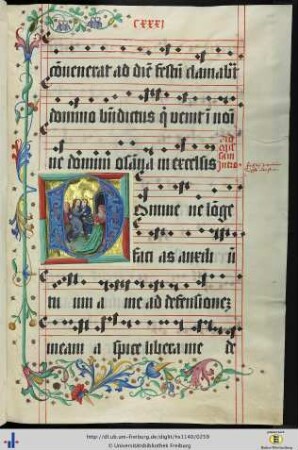 CXXXI
cōuenerat ad diē festū clamabāt
domino bn̄dictus q̄ venit ī noī
ne domini osāna in excelsis
Ad
offi
Domine ne lōge
facias auxiliū
tuum a me ad defensionez
meam aspice libera me de
http://dl.ub.uni-freiburg.de/diglit/hs1148/0259
© Universitätsbibliothek Freiburg